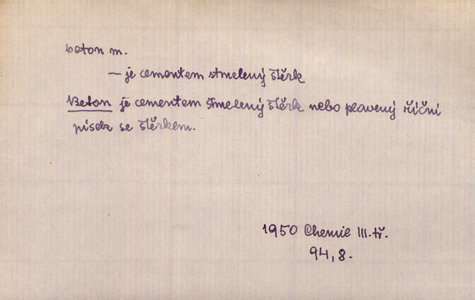 beton m.
— je cementem stmelený štěrk
Beton je cementem stmelený štěrk nebo plavený říční
písek se štěrkem.
1950 Chemie III. tř.
94, 8.